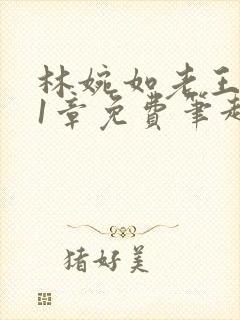 林婉如老王
1章免费笔趣
猪好美